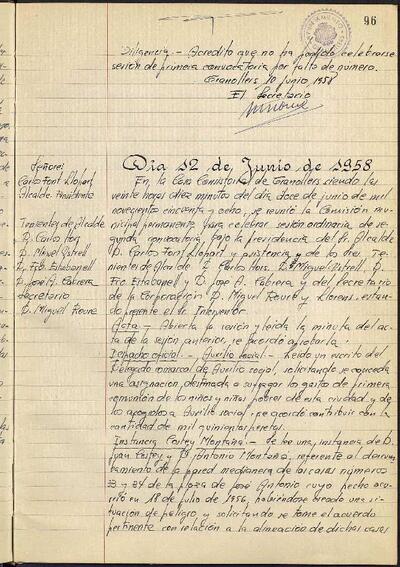 96
Diligencia.- Acredito que no ha podido celebrarse
sesión de primera convocatoria por falta de número.
Granollers 10 Junio 1958
El Secretario
Señores
Carlos Font Llopart
Alcalde Presidente
Tenientes de Alcalde
D. Carlos Hors
D. Miguel Vatrell
D. Fco Estabanell
D. José A. Cabrera
Secretario
D. Miguel Roure
Día 12 de Junio de 1958
En la Casa Consistorial de Granollers siendo las
veinte horas diez minutos del día doce de junio de mil
novecientos cincuenta y ocho, se reunió la Comisión mu-
nicipal permanente para celebrar sesión ordinaria de se-
gunda convocatoria, bajo la presidencia del Sr. Alcalde
D. Carlos Font Llopart y asistencia de los Sres. Te-
nientes de Alcalde D. Carlos Hors, D. Miguel Vatrell, D.
Fco Estabanell y D. José A. Cabrera y del Secretario
de la Corporación D. Miguel Roure y Llorens, estan-
do presente el Sr. Interventor.
Acta.- Abierta la sesión y leída la minuta del ac-
ta de la sesión anterior, se acordó aprobarla.
Despacho oficial.- Auxilio Social.- Leído un escrito del
Delegado comarcal de Auxilio Social, solicitando se conceda
una asignación, destinada a sufragar los gastos de primera
comunión de los niños y niñas pobres de esta ciudad y de
los acogidos a Auxilio Social, se acordó contribuir con la
cantidad de mil quinientas pesetas.
Instancia Costey Montañá.- Se lee una instancia de D.
Juan Costey y D. Antonio Montañá, referente al derrum-
bamiento de la pared medianera de las casas números
33 y 34 de la plaza de José Antonio cuyo hecho ocu-
rrió en 18 de Julio de 1956, habiéndose creado una si-
tuación de peligro, y solicitando se tome el acuerdo
pertinente con relación a la alineación de dichas casas